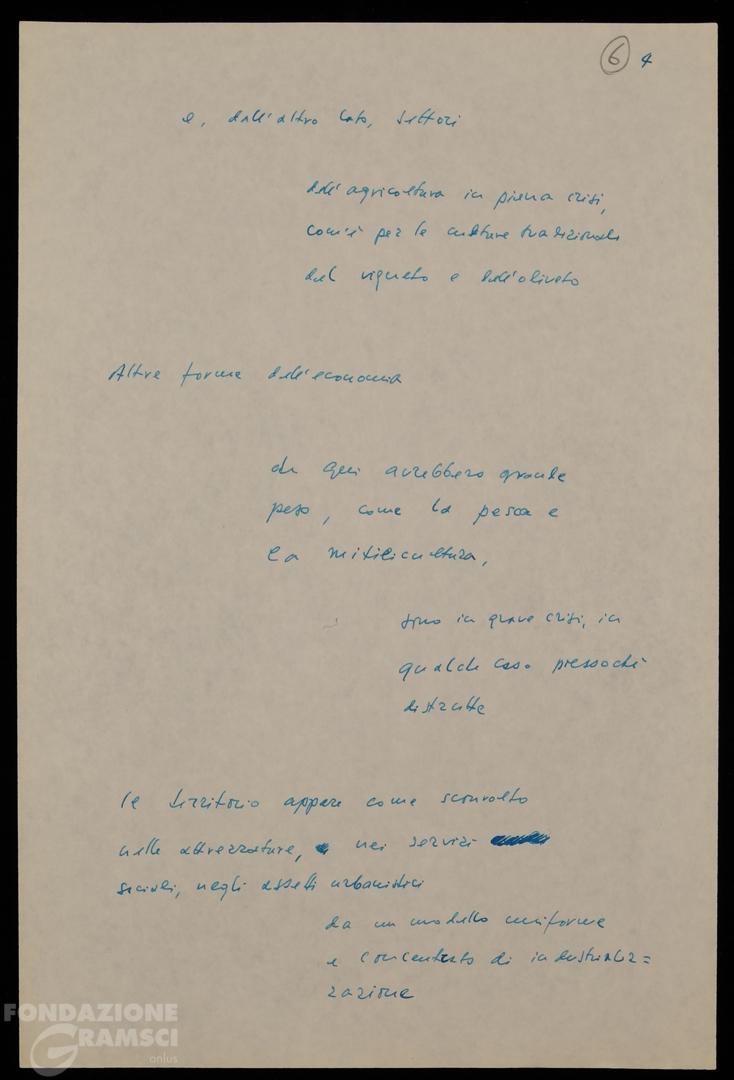 6 4
e, dall'altro lato, settori
dell'agricoltura in piena crisi,
com'è per le culture tradizionali
del vigneto e dell'oliveto
Altre forme dell'economia
che qui avrebbero grande
peso, come la pesca e
la mitilicultura,
sono in grave crisi, in
qualche caso pressoché
distrutte
Il territorio appare come sconvolto
nelle attrezzature, nei servizi
sociali, negli assetti urbanistici
da un modello uniforme
e concentrato di industrializ=
zazione
FONDAZIONE
GRAMSCI
onlus